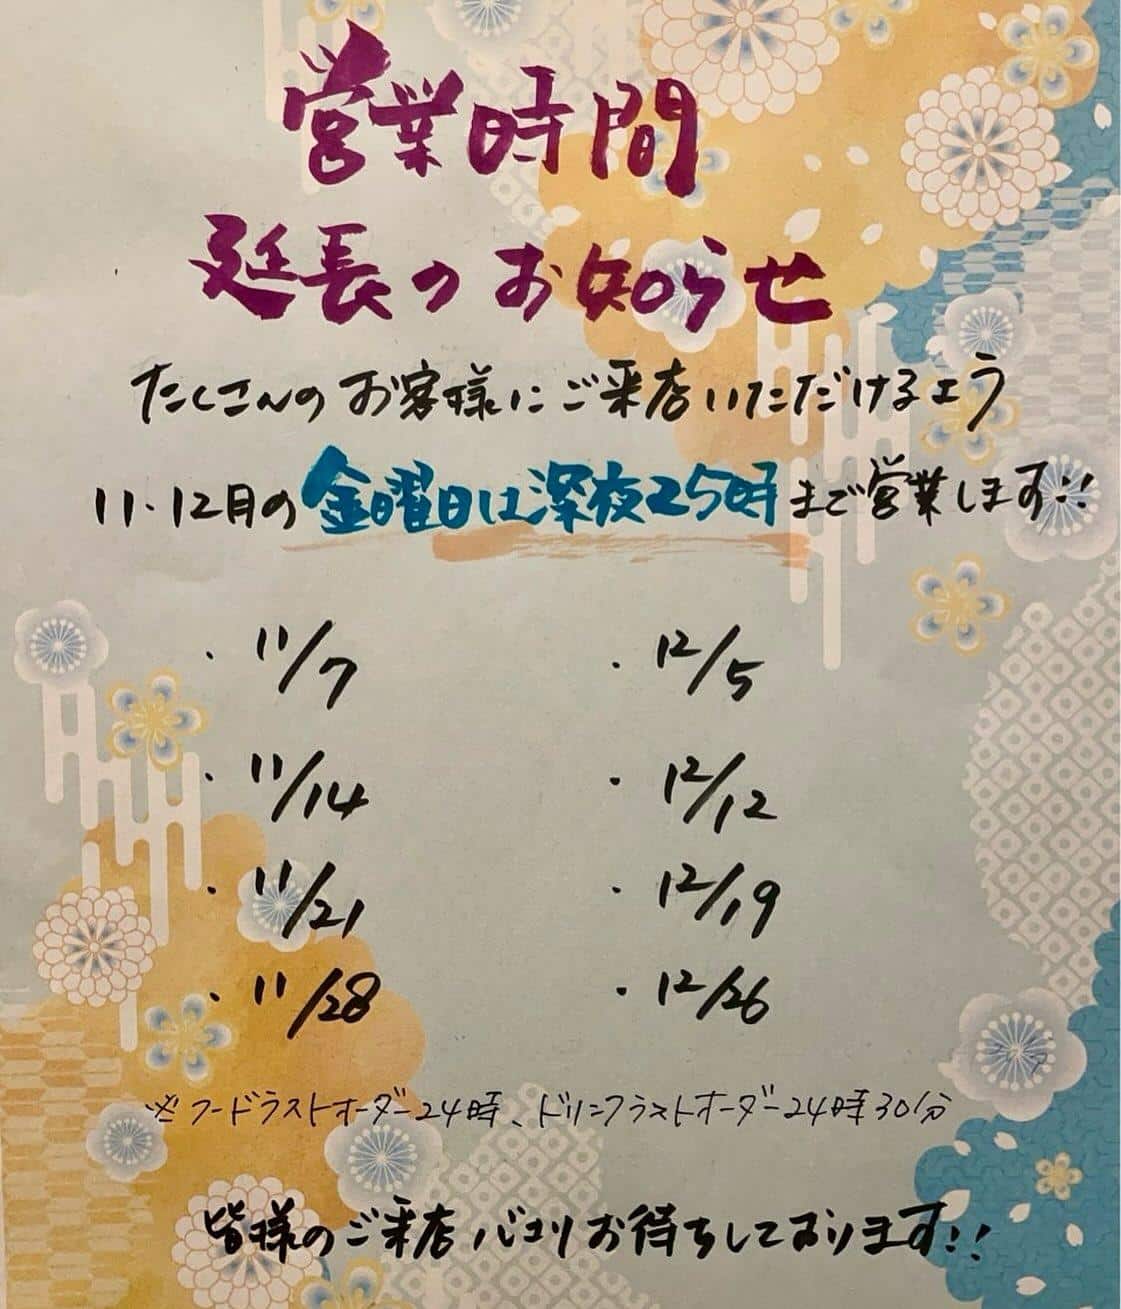 営業時間
延長のお知らせ
たくさんのお客様にご来店いただけるよう
11・12月の金曜日は深夜25時まで営業します!!
・11/7
・12/5
・11/14
・12/12
・11/21
・12/19
・11/28
・12/26
※フードラストオーダー24時、ドリンクラストオーダー24時30分
皆様のご来店心よりお待ちしております!!